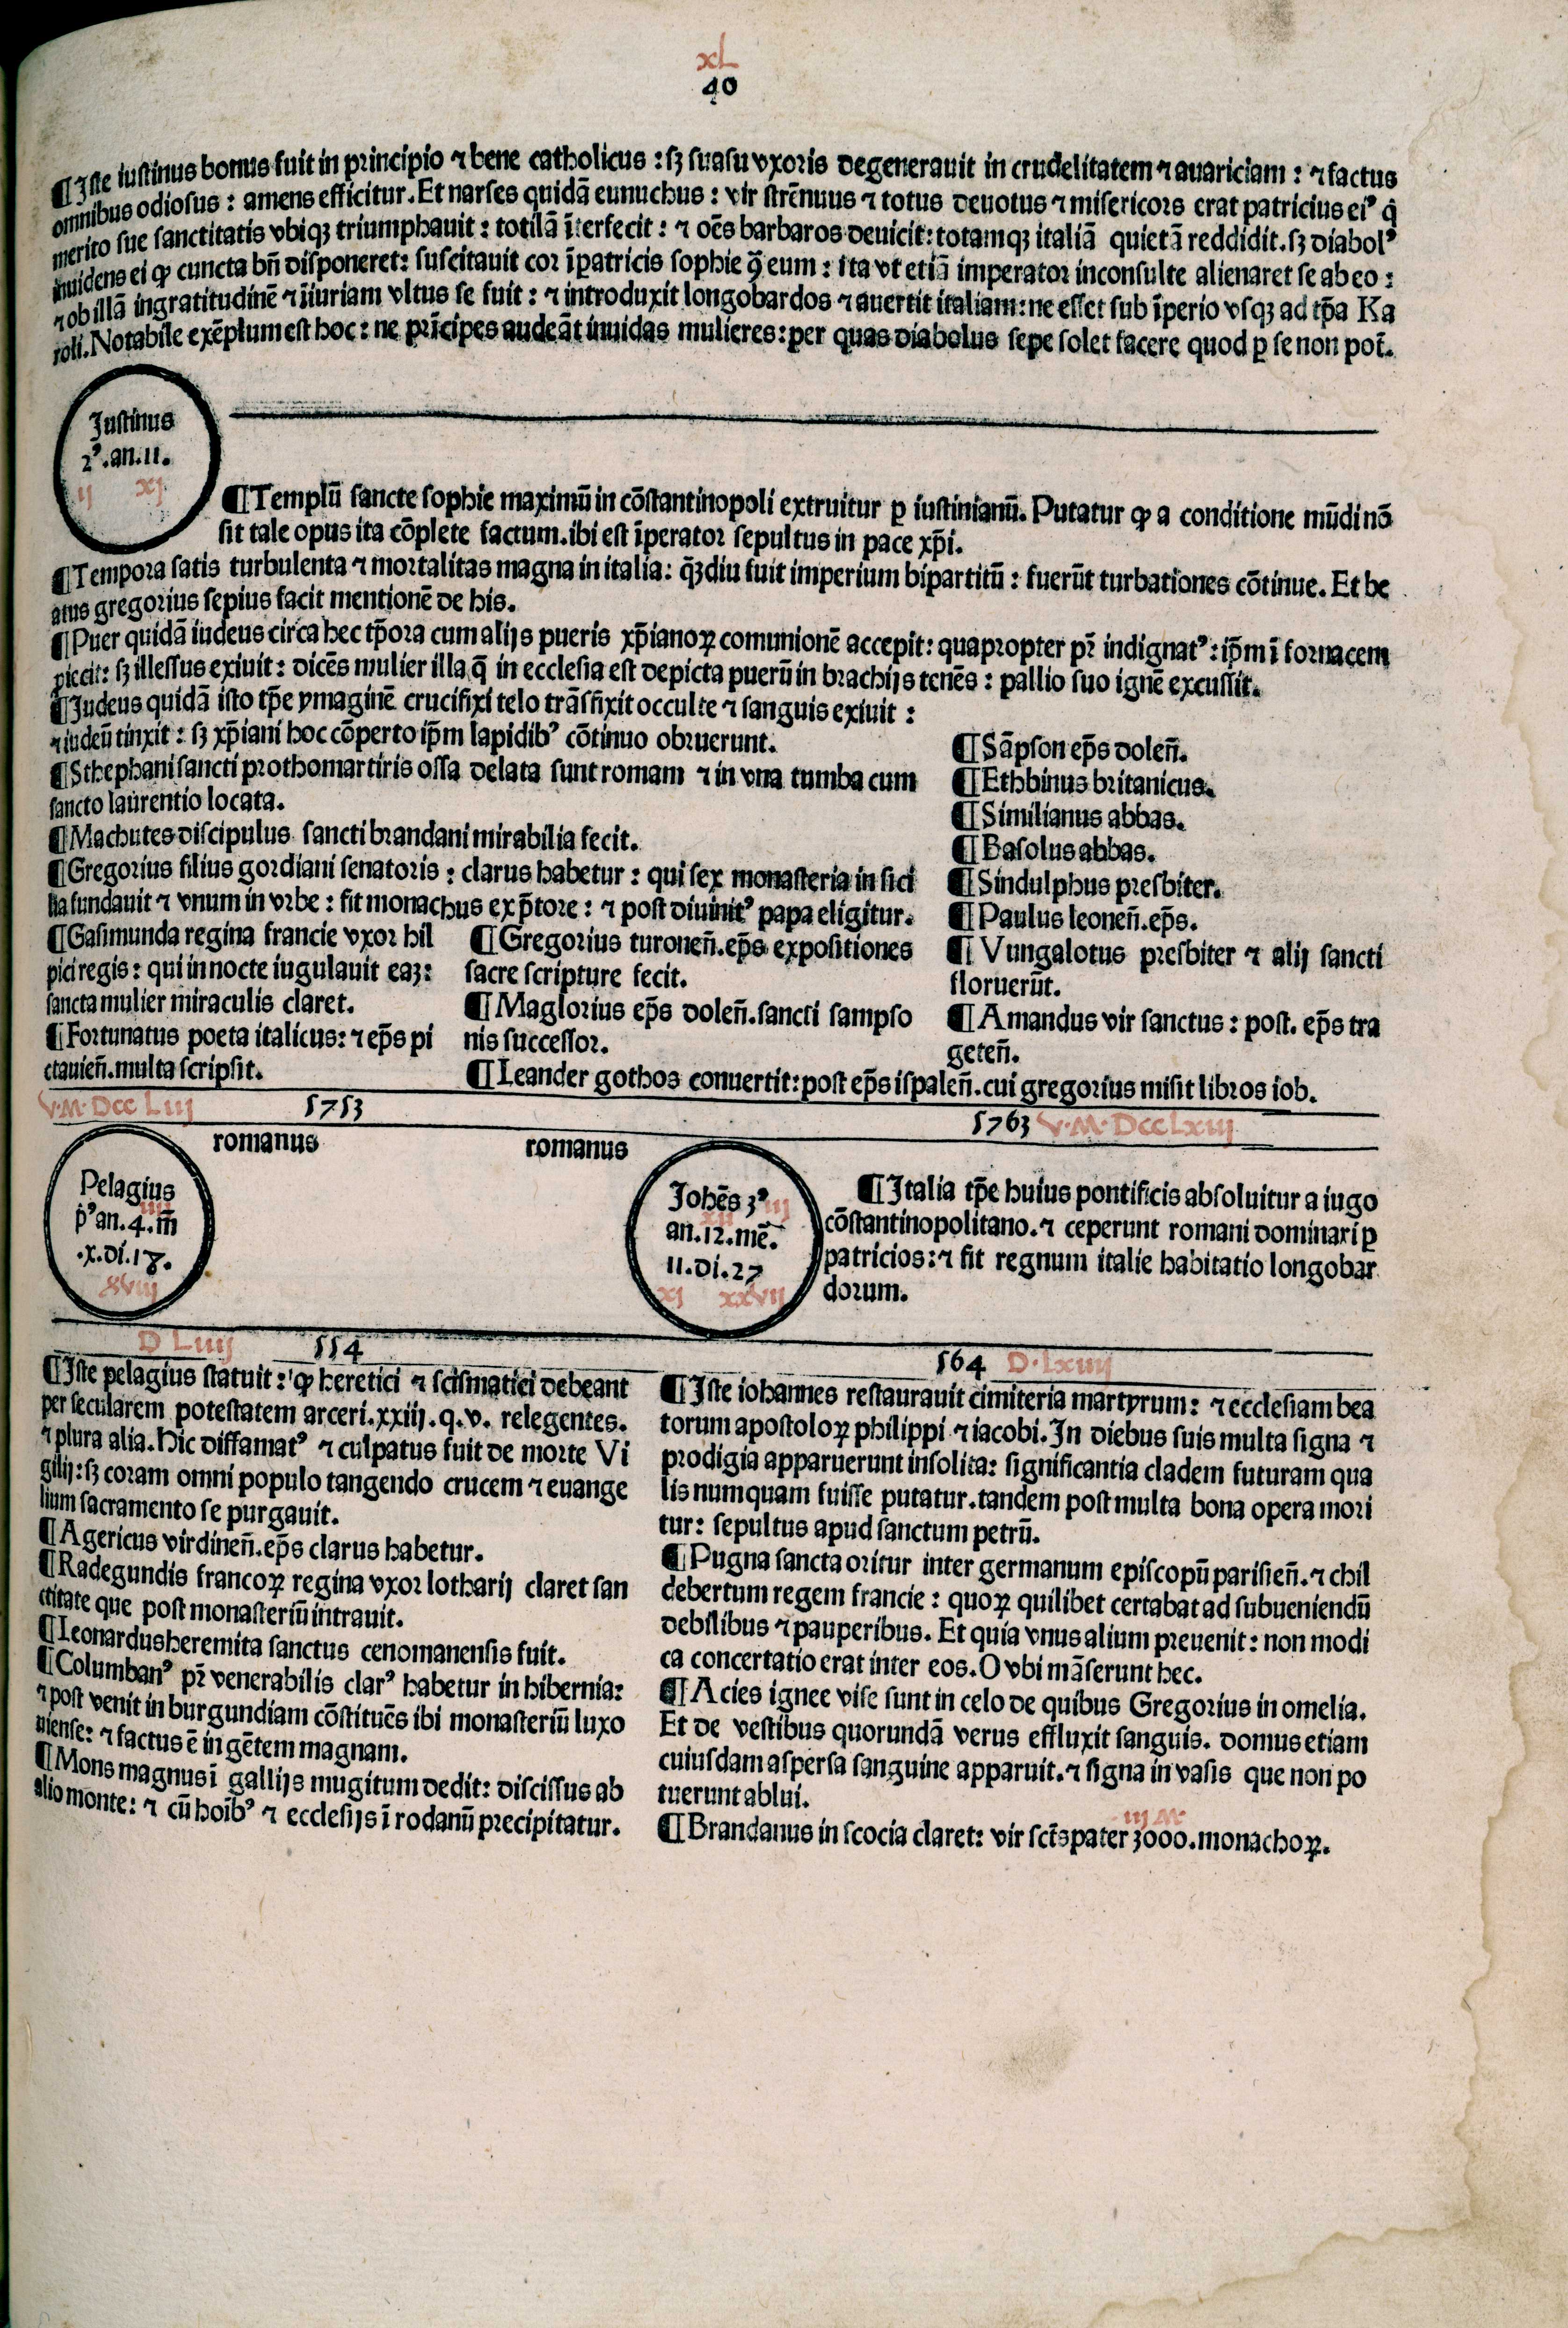 xl
40
¶Iste iustinus bonus fuit in principio ⁊ bene catholicus : sꝫ suasu vxoris degenerauit in crudelitatem ⁊ auariciam : ⁊ factus
omnibus odiosus : amens efficitur. Et narses quidã eunuchus : vir strẽnuus ⁊ totus deuotus ⁊ misericors erat patricius eiꝰ q̃
merito sue sanctitatis vbiqꝫ triumphauit : totilã ĩterfecit : ⁊ oẽs barbaros deuicit: totamqꝫ italiã quietã reddidit. sꝫ diabolꝰ
inuidens ei ꝙ cuncta bñ disponeret: suscitauit cor ĩpatricis sophie ꝯ̃ eum : ita vt etiã imperator inconsulte alienaret se ab eo :
⁊ ob illã ingratitudinẽ ⁊ iĩuriam vltus se fuit : ⁊ introduxit longobardos ⁊ auertit italiam: ne esset sub ĩperio vsqꝫ ad tp̃a Ka
roli. Notabile exẽplum est hoc : ne prĩcipes audeãt inuidas mulieres: per quas diabolus sepe solet facere quod ꝑ se non pot̃.
Justinus
2ꝰ. an. 11.
ij xj
¶Templũ sancte sophie maximũ in cõstantinopoli extruitur ꝑ iustinianũ. Putatur ꝙ a conditione mũdi nõ
sit tale opus ita cõplete factum. ibi est ĩperator sepultus in pace xp̃i.
¶Tempora satis turbulenta ⁊ mortalitas magna in italia: q̃ꝫdiu fuit imperium bipartitũ : fuerũt turbationes cõtinue. Et be
atus gregorius sepius facit mentionẽ de his.
¶Puer quidã iudeus circa hec tp̃ora cum alijs pueris xp̃ianoꝝ comunionẽ accepit: quapropter pr̃ indignatꝰ : ip̃m ĩ fornacem
piecit: sꝫ illesus exiuit : dicẽs mulier illa q̃ in ecclesia est depicta puerũ in brachijs tenẽs : pallio suo ignẽ excussit.
¶Judeus quidã isto tp̃e ymaginẽ crucifixi telo trãsfixit occulte ⁊ sanguis exiuit :
⁊ iudeũ tinxit : sꝫ xp̃iani hoc cõperto ip̃m lapidibꝰ cõtinuo obruerunt.
¶Sthephani sancti prothomartiris ossa delata sunt romam ⁊ in vna tumba cum
sancto laurentio locata.
¶Machutes discipulus sancti brandani mirabilia fecit.
¶Gregorius filius gordiani senatoris : clarus habetur : qui sex monasteria in sici
lia fundauit ⁊ vnum in vrbe : fit monachus ex p̃tore : ⁊ post diuinitꝰ papa eligitur.
¶Sãpson ep̃s doleñ.
¶Ethbinus britanicus.
¶Similianus abbas.
¶Basolus abbas.
¶Sindulphus presbiter.
¶Paulus leoneñ. ep̃s.
¶Vungalotus presbiter ⁊ alij sancti
floruerũt.
¶Amandus vir sanctus : post. ep̃s tra
geteñ.
¶Gasimunda regina francie vxor hil
pici regis : qui in nocte iugulauit eaꝫ:
sancta mulier miraculis claret.
¶Fortunatus poeta italicus: ⁊ ep̃s pi
ctauieñ. multa scripsit.
¶Gregorius turoneñ. ep̃s expositiones
sacre scripture fecit.
¶Maglorius ep̃s doleñ. sancti sampso
nis successor.
¶Leander gothos conuertit: post ep̃s ispaleñ. cui gregorius misit libros iob.
V.M.Dcc Liij 5753
5763 V.M.DccLxiij
romanus
romanus
Pelagius
pꝰ an. 4. m̃
iiij
.x. di. 18.
xviij
Johẽs 3ꝰ
iij
an. 12. mẽ.
xij
11. di. 27
xj xxvij
¶Italia tp̃e huius pontificis absoluitur a iugo
cõstantinopolitano. ⁊ ceperunt romani dominari ꝑ
patricios: ⁊ fit regnum italie habitatio longobar
dorum.
D Liiij 554
564 D.Lxiiij
¶Iste pelagius statuit : ꝙ heretici ⁊ scismatici debeant
per secularem potestatem arceri. xxiij. q. v. relegentes.
⁊ plura alia. Hic diffamatꝰ ⁊ culpatus fuit de morte Vi
gilij: sꝫ coram omni populo tangendo crucem ⁊ euange
lium sacramento se purgauit.
¶Agericus virdineñ. ep̃s clarus habetur.
¶Radegundis francoꝝ regina vxor lotharij claret san
ctitate que post monasteriũ intrauit.
¶Leonardus heremita sanctus cenomanensis fuit.
¶Columbanꝰ pr̃ venerabilis clarꝰ habetur in hibernia:
⁊ post venit in burgundiam cõstituẽs ibi monasteriũ luxo
uiense: ⁊ factus ẽ in gẽtem magnam.
¶Mons magnus ĩ gallijs mugitum dedit: discissus ab
alio monte: ⁊ cũ hoĩbꝰ ⁊ ecclesijs ĩ rodanũ precipitatur.
¶Iste iohannes restaurauit cimiteria martyrum: ⁊ ecclesiam bea
torum apostoloꝝ philippi ⁊ iacobi. In diebus suis multa signa ⁊
prodigia apparuerunt insolita: significantia cladem futuram qua
lis numquam fuisse putatur. tandem post multa bona opera mori
tur: sepultus apud sanctum petrũ.
¶Pugna sancta oritur inter germanum episcopũ parisieñ. ⁊ chil
debertum regem francie : quoꝝ quilibet certabat ad subueniendũ
debilibus ⁊ pauperibus. Et quia vnus alium preuenit : non modi
ca concertatio erat inter eos. O vbi mãserunt hec.
¶Acies ignee vise sunt in celo de quibus Gregorius in omelia.
Et de vestibus quorundã verus effluxit sanguis. domus etiam
cuiusdam aspersa sanguine apparuit. ⁊ signa in vasis que non po
tuerunt ablui.
iij M
¶Brandanus in scocia claret: vir sct̃s pater 3000. monachoꝝ.